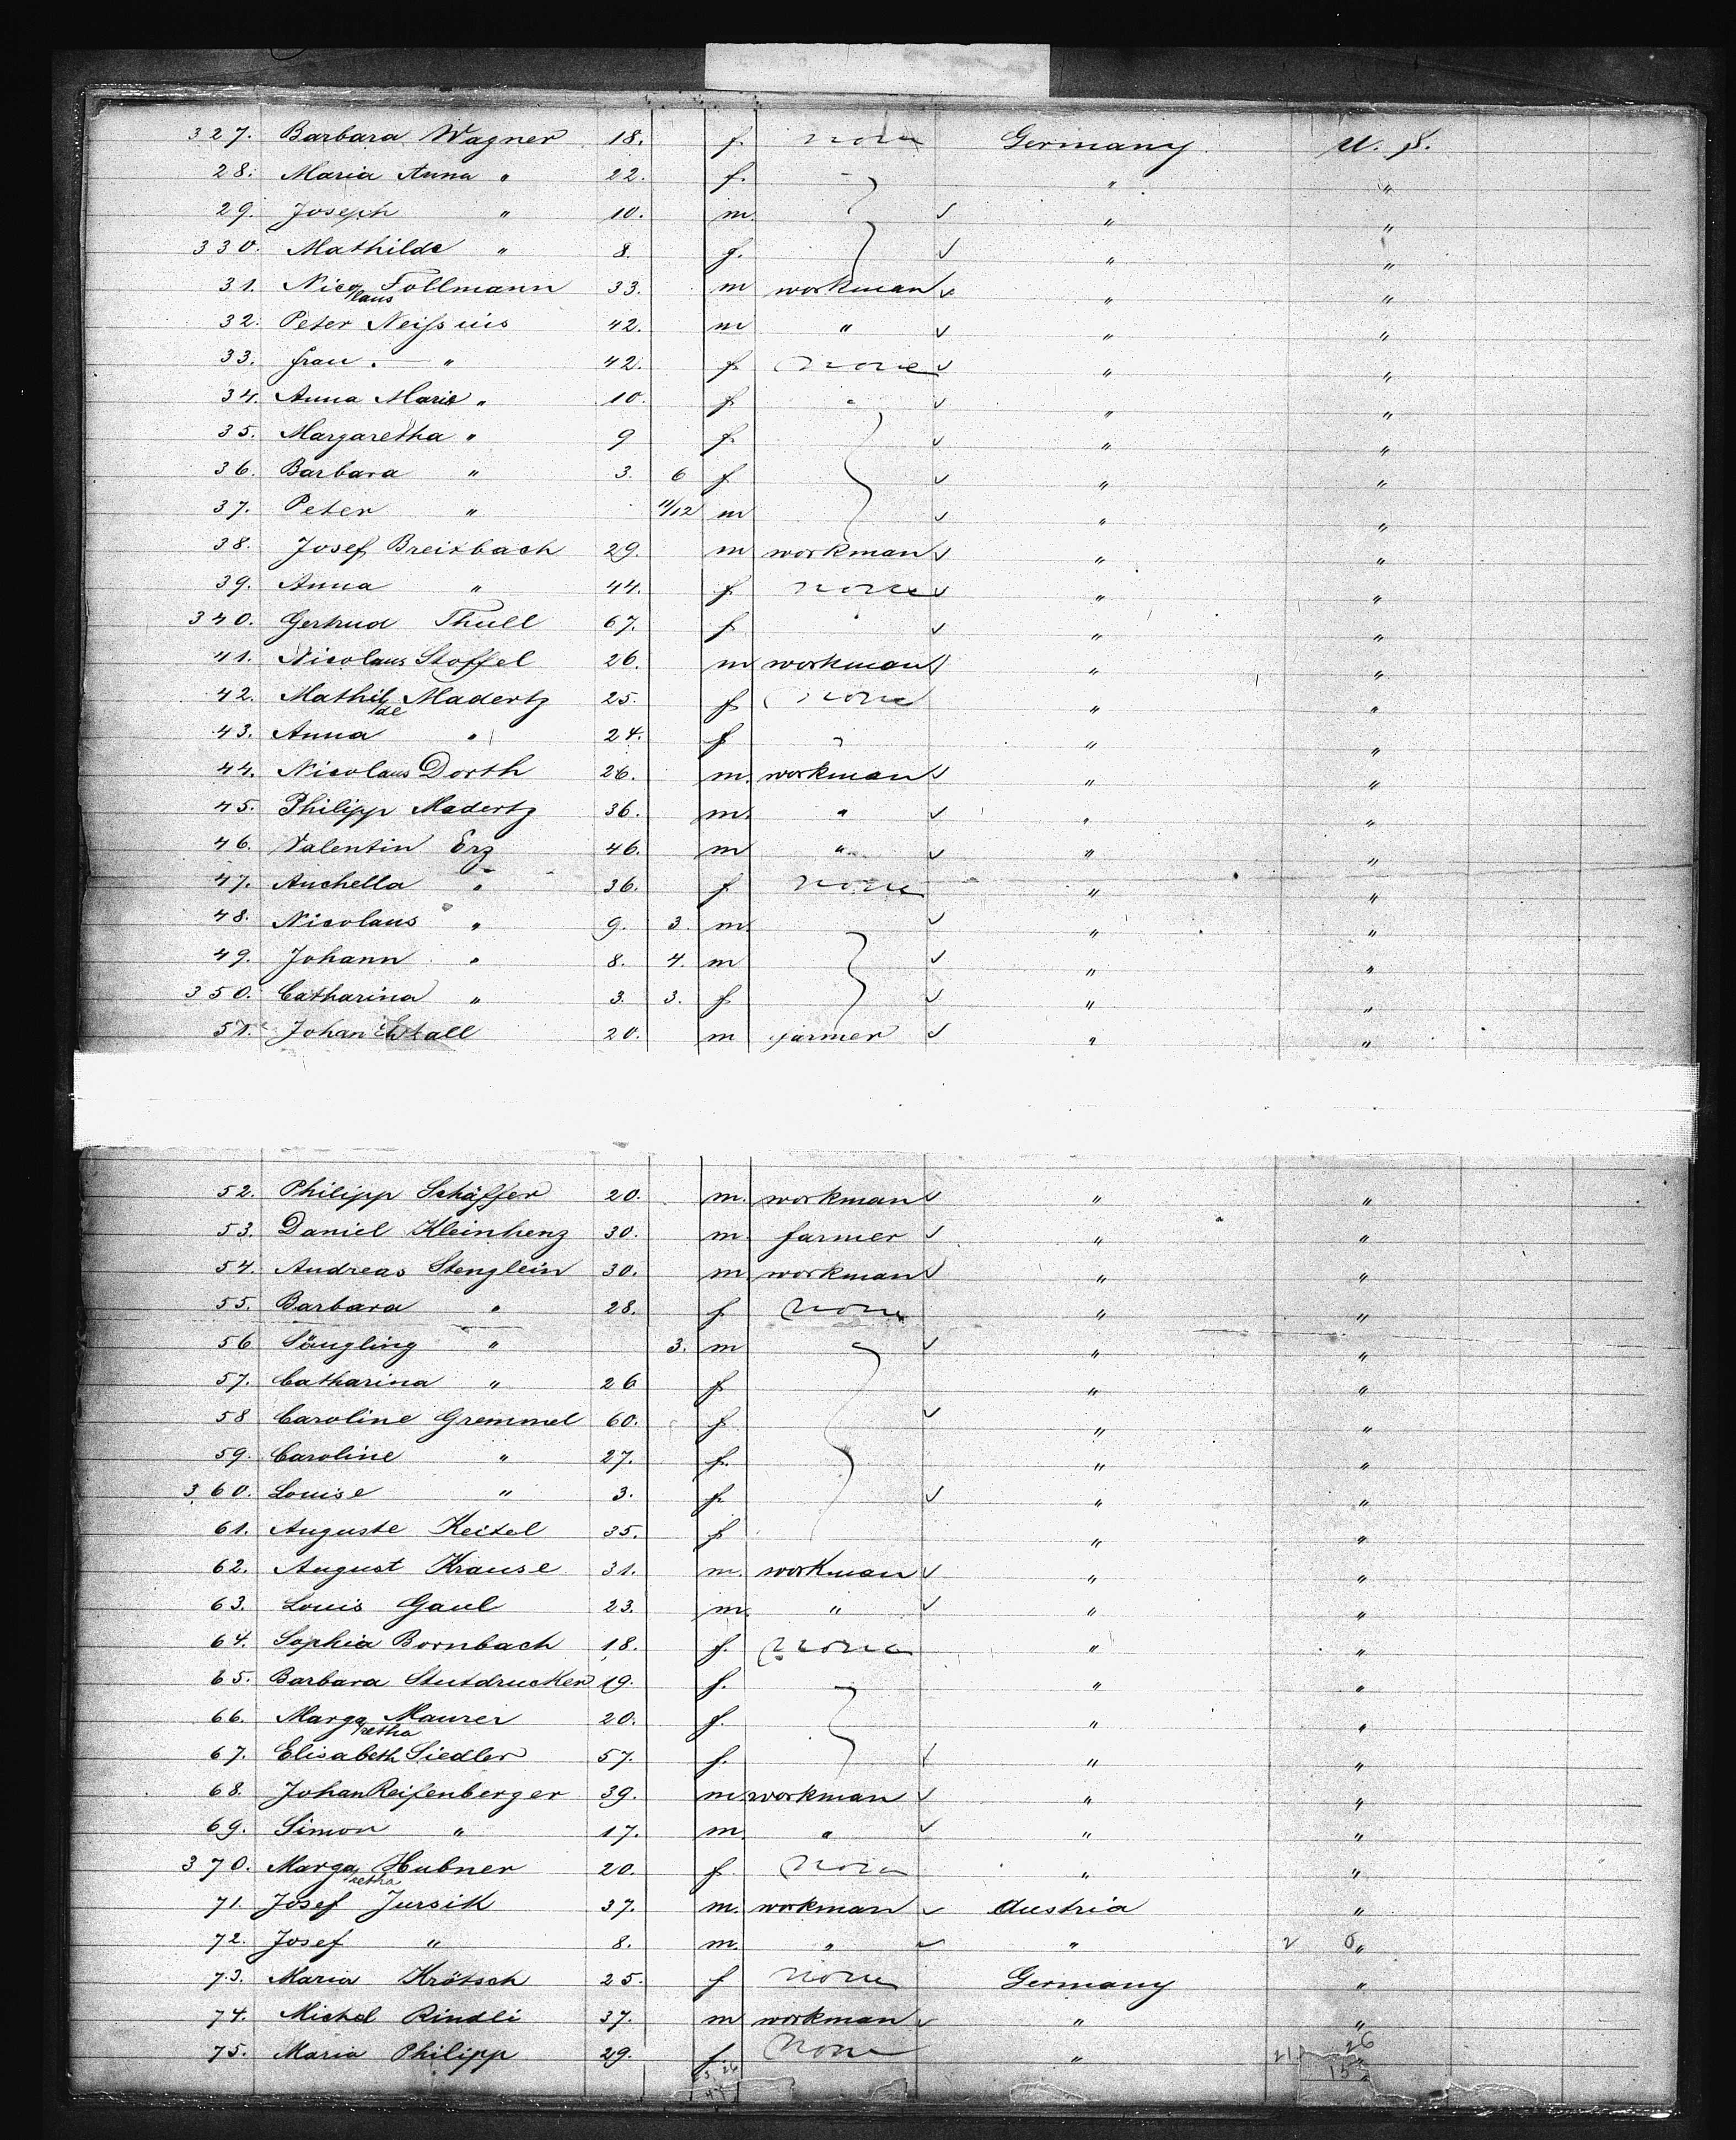 327. Barbara Wagner 18. f. none Germany U. S.
28. Maria Anna " 22. f. " " "
29. Joseph " 10. m. ✓ " "
330. Mathilde " 8. f. ✓ " "
31. Nicolaus Follmann 33. m workman ✓ " "
32. Peter Neissius 42. m " ✓ " "
33. frau . — " 42. f. none ✓ " "
34. Anna Maria " 10. f " ✓ " "
35. Margaretha " 9 f. ✓ " "
36. Barbara " 3. 6 f. ✓ " "
37. Peter " 11/12 m ✓ " "
38. Josef Breitbach 29. m workman ✓ " "
39. Anna " 44. f. none ✓ " "
340. Gertrud Thull 67. f. " ✓ " "
41. Nicolaus Stoffel 26. m workman ✓ " "
42. Mathilde Madertz 25. f none " "
43. Anna " 24. f " " "
44. Nicolaus Dorth 26. m. workman ✓ " "
45. Philipp Madertz 36. m. " ✓ " "
46. Valentin Erz 46. m " ✓ " "
47. Auchella " 36. f. none " "
48. Nicolaus " 9. 3. m. ✓ " "
49. Johann " 8. 4. m ✓ " "
350. Catharina " 3. 3. f. ✓ " "
51. Johan 20. m farmer ✓ " "
52. Philipp Schäffer 20. m. workman ✓ " "
53. Daniel Kleinhenz 30. m. farmer ✓ " "
54. Andreas Stenglein 30. m workman ✓ " "
55. Barbara " 28. f. none " "
56 Säugling " 3. m ✓ " "
57. Catharina " 26 f " "
58 Caroline Gremmel 60. f. ✓ " "
59. Caroline " 27. f. " "
360. Louise " 3. f. ✓ " "
61. Auguste Keitel 35. f " "
62. August Krause 31. m. workman ✓ " "
63. Louis Gaul 23. m. " ✓ " "
64. Sophia Bornbach 18. f. none " "
65. Barbara Stutdrucker 19. f. " "
66. Margaretha Maurer 20. f. " "
67. Elisabeth Siedler 57. f. ✓ " "
68. Johan Reifenberger 39. m workman ✓ " "
69. Simon " 17. m. " ✓ " "
370. Margaretha Hubner 20. f. none " "
71. Josef Jursik 37. m. workman ✓ Austria "
72. Josef " 8. m. " ✓ " 2 "
73. Maria Krötsch 25. f none Germany "
74. Michel Rindli 37. m workman ✓ " "
75. Maria Philipp 29. f. none " "
21 26
15